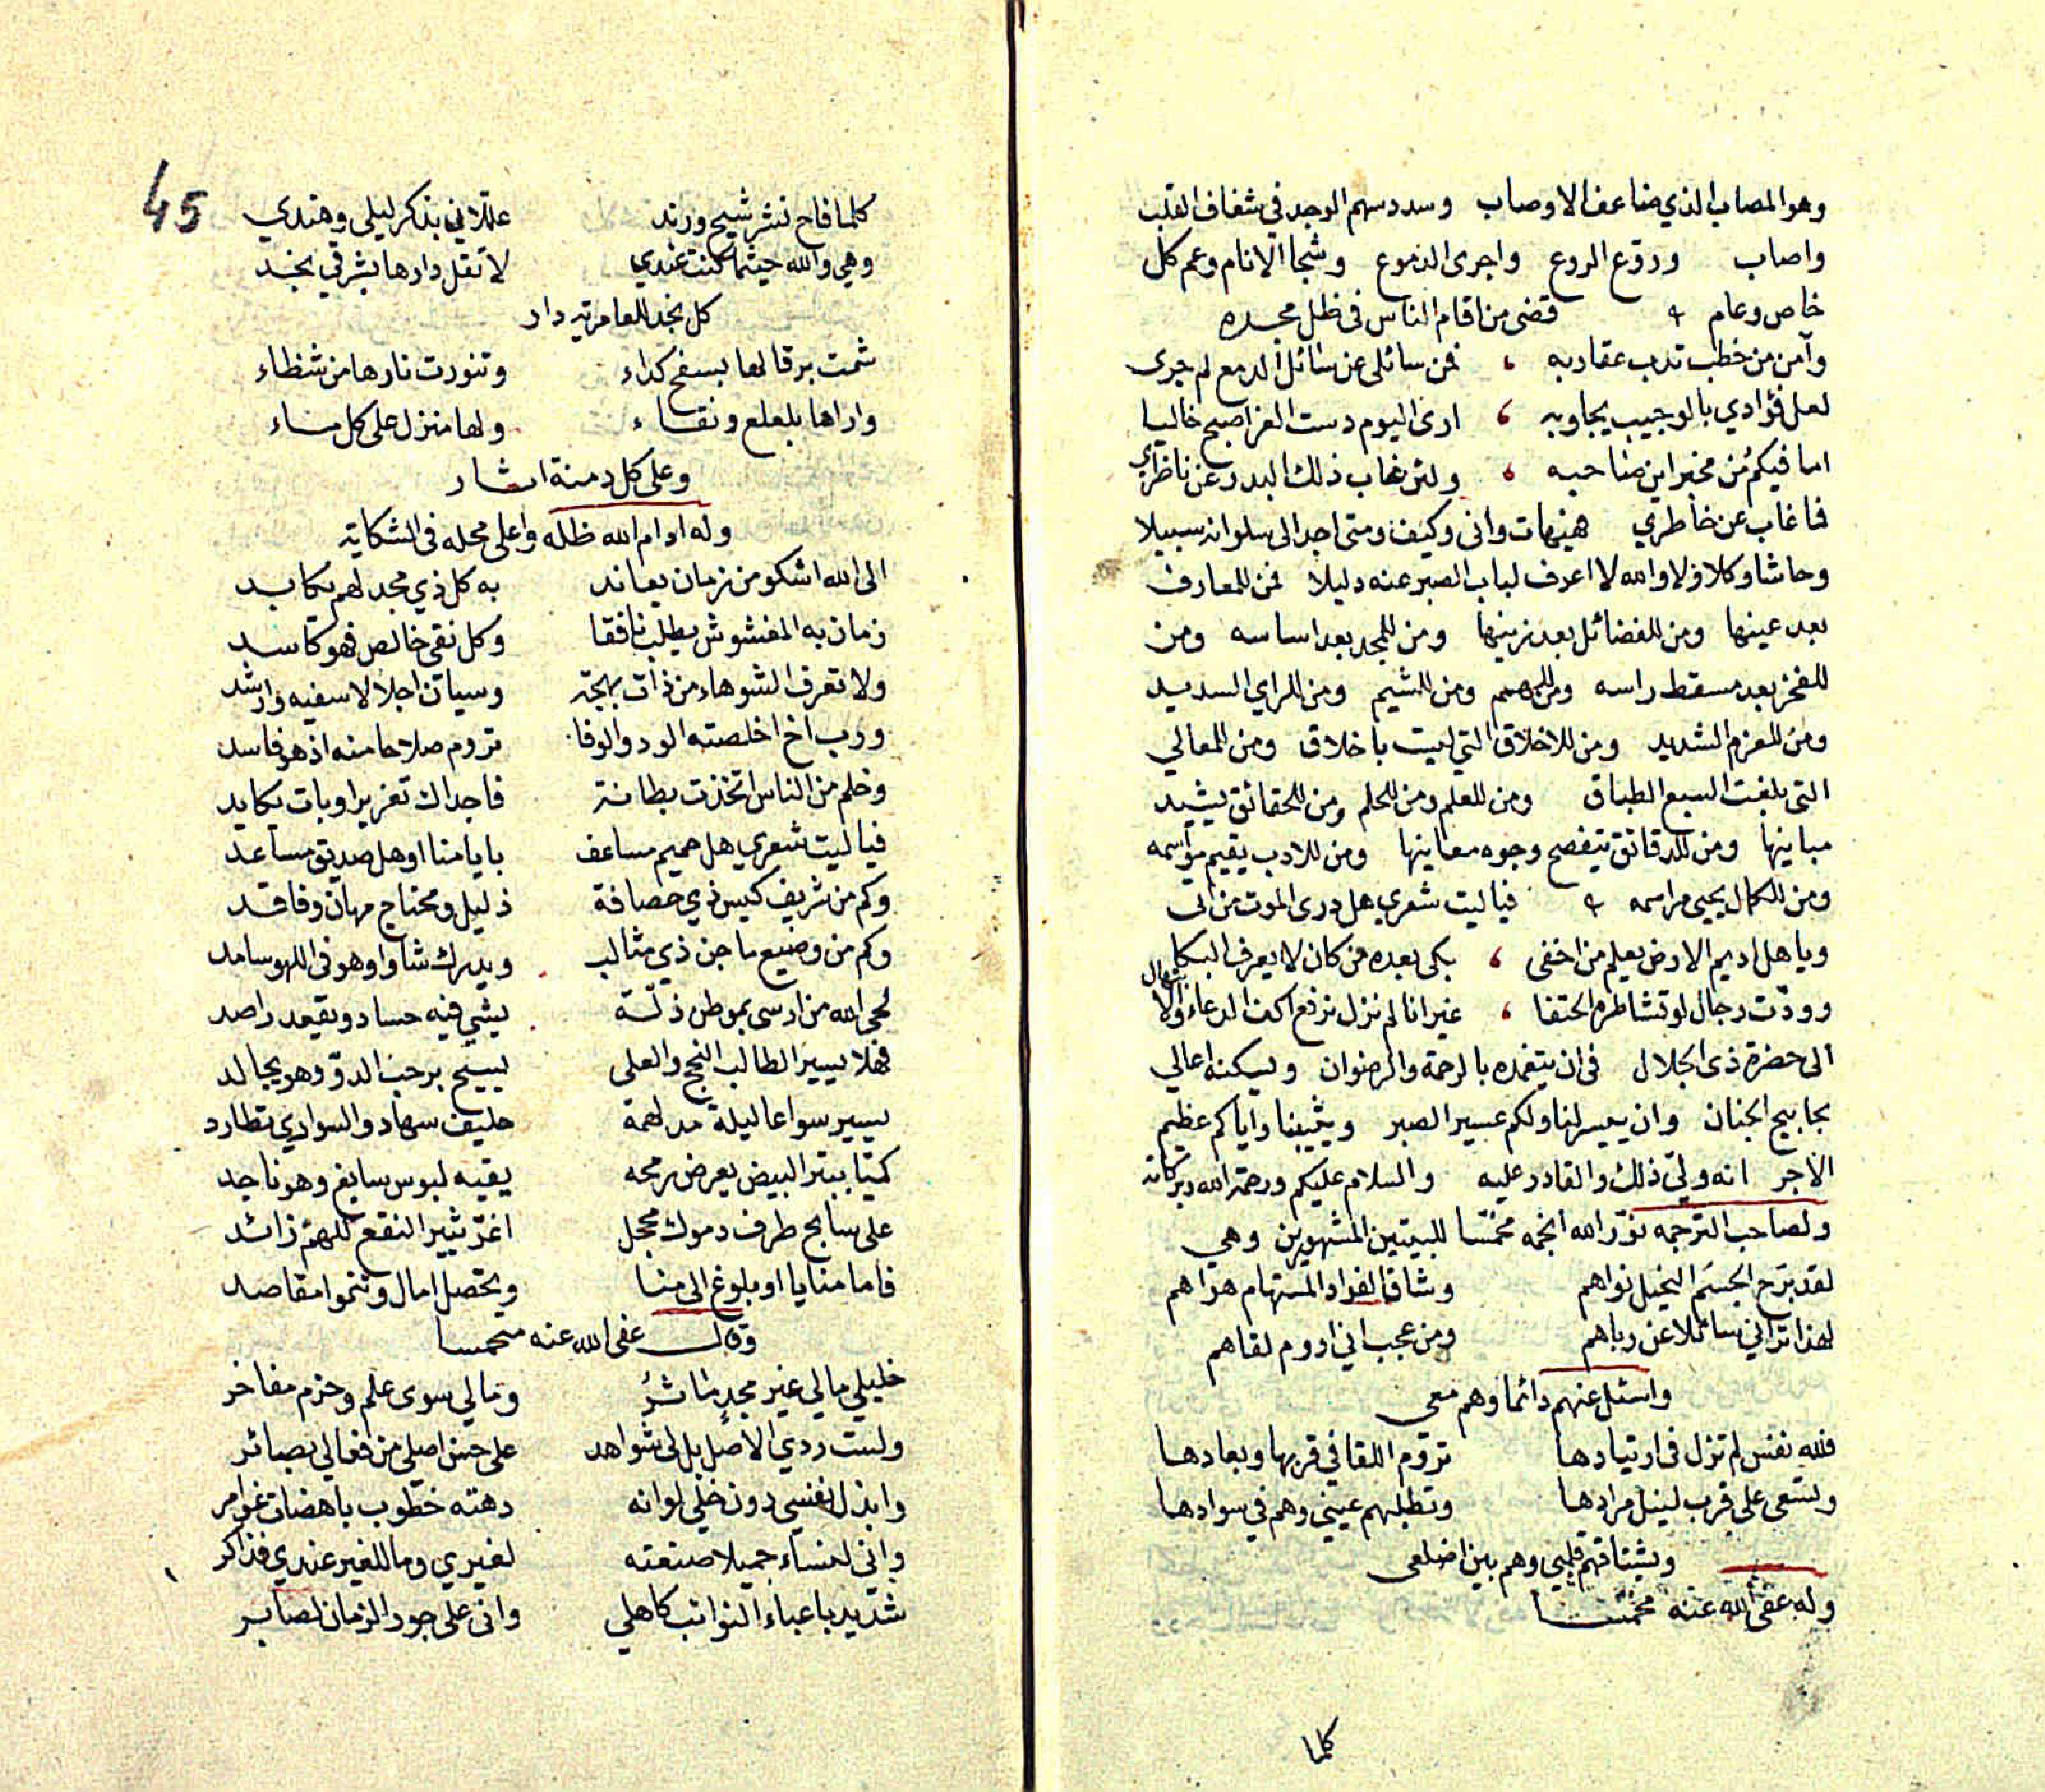 وهو المصاب الذي ضاعف الاوصاب وسدد سهم الوجد في شغاف القلب
واصاب وروّع الروع واجرى الدموع وشجا الانام وعم كل
خاص وعام قضى من اقام الناس في ظل مجده
وآمن من خطب تدب عقاربه فمن سائلي عن سائل الدمع لم جرى
لعل فؤادي بالوجيب يجاوبه ارى اليوم دست العز اصبح خاليا
اما فيكم من مخبر اين صاحبه ولئن غاب ذلك البدر عن ناظري
فما غاب عن خاطري هيهات وانى وكيف ومتى اجد الى سلوانه سبيلا
وحاشا وكلا ولا والله لا اعرف لباب الصبر عنه دليلا فمن للمعارف
بعد عينها ومن للفضائل بعد زينها ومن للمجد بعد اساسه ومن
للفخر بعد مسقط راسه ومن للهمم ومن للشيم ومن للراي السديد
ومن للعزم الشديد ومن للاخلاق التي ليت باخلاق ومن للمعالي
التي بلغت السبع الطباق ومن للعلم ومن للحلم ومن للحقائق يشيد
مبانيها ومن للدقائق يفصح وجوه معانيها ومن للادب يقيم مواسمه
ومن للكمال يحيي مراسمه فياليت شعري هل درى الموت من اتى
ويا هل اديم الارض يعلم من اخفى بكى بعده من كان لا يعرف البكا
وودّت رجال لو تشاطره الحتفا غير انا لم نزل نرفع اكف الدعاء والابتهال
الى حضرة ذي الجلال في ان يتغمده بالرحمة والرضوان ويسكنه اعالي
بحابيح الجنان وان ييسر لنا ولكم عسير الصبر ويثيبنا واياكم عظيم
الاجر انه وليّ ذلك والقادر عليه والسلام عليكم ورحمة الله وبركاته
ولصاحب الترجمه نوّر الله انجمه مخمّسا للبيتين المشهورين وهي
لقد برّح الجسم النحيل نواهم وشاق الفواد المستهام هواهم
لهذا تراني سائلا عن رباهم ومن عجب اني اروم لقاهم
واسئل عنهم دائما وهم معي
فلله نفس لم تزل في ارتيادها تروم اللقا في قربها وبعادها
وتسعى على قرب لنيل مرادها وتطلبهم عيني وهم في سوادها
ويشتاقهم قلبي وهم بين اضلعي
وله عفى الله عنه مخمسا
كلما
45
كلما فاح نشر شيح ورند عللاني بذكر ليلى وهندي
وهي والله حيثما كنت عندي لا تقل دارها بشرقي نجد
كل نجد للعامرية دار
شمت برقا لها بسفح كداء وتنورت نارها من شظاء
واراها بلعلع ونقاء ولها منزل على كل ماء
وعلى كل دمنة اثار
وله ادام الله ظله واعلى محله في الشكاية
الى الله اشكو من زمان يعاند به كل ذي مجد لهم يكابد
زمان به المغشوش يطلب نافقا وكل نقي خالص فهو كاسد
ولا تعرف الشوهاء من ذات بهجة وسيان اجلالا سفيه وارشد
ورب اخ اخلصته الود والوفا تروم صلاحا منه اذ هو فاسد
وخلم من الناس اتخذت بطانة فاجداك تغريرا وبات يكايد
فياليت شعري هل حميم مساعف بايامنا او هل صديق مساعد
وكم من شريف كيس ذي حصافة ذليل ومحتاج مهان وفاقد
وكم من وضيع ماجن ذي مثالب ويدرك شاوا وهو في اللهو سامد
لحى الله من ارسى بموطن ذلّة يشي فيه حساد ويقعد راصد
فهلا يسير الطالب النجح والعلى يسيح برحب الدوّ وهو يجالد
يسير سواعا ليلة مدلهمة حليف سهاد والسواري تطارد
كميّا ببتر البيض يعرض رمحه يقيه لبوس سابغ وهو ناجد
على سابح طرف دموك محجل اغرّ يثير النقع للهم زائد
فاما منايا او بلوغ الى منا وتحصل امال وتنمو مقاصد
وقال عفى الله عنه متحمسا
خليلي مالي غير مجدٍ ماثرُ ومالي سوى علم وحزم مفاخر
ولست ردي الاصل بل لي شواهد على حسن اصلي من فعالي بصائر
وابذل نفسي دون خلي لوانه دهته خطوب باهضات غوامر
واني لمنساء جميلا صنعته لغيري وما للغير عندي فذاكر
شديد باعباء النوائب كاهلي واني على جور الزمان لصابر